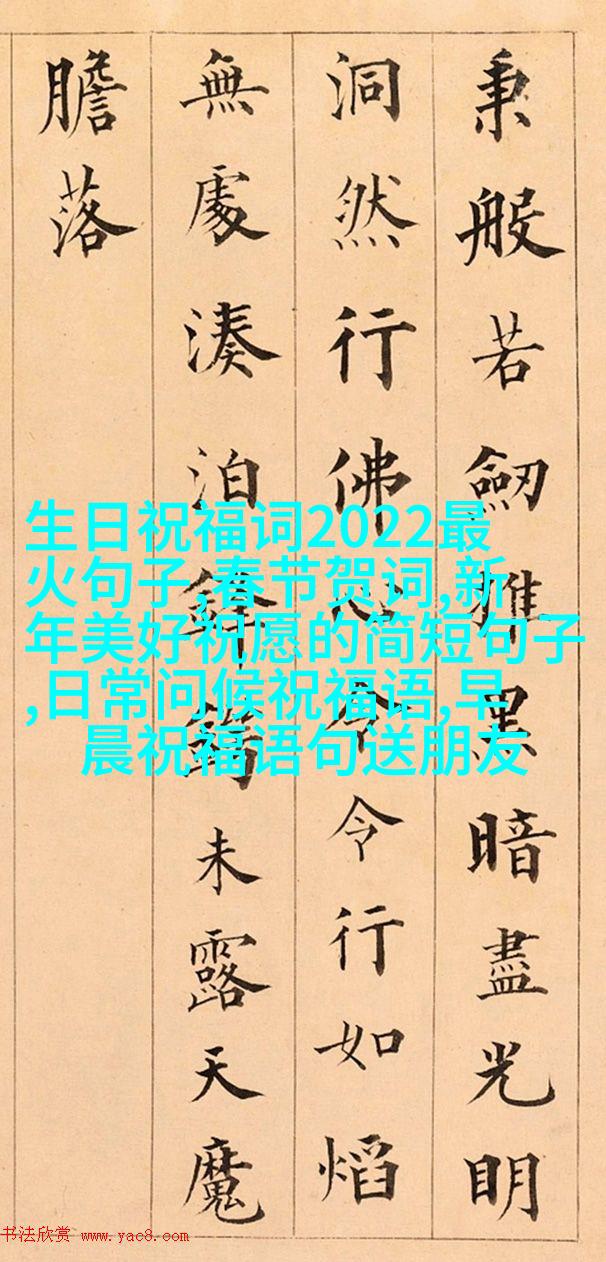 秉般若劒黑暗盡光明
洞然行佛心令令行如熖
無處湊泊鋒未露天魔
膽落
生日祝福词2022最
火句子,春节贺词,新
年美好祝愿的简短句子
,日常问候祝福语,早
晨祝福语句送朋友
书法欣赏 www.yac8.com